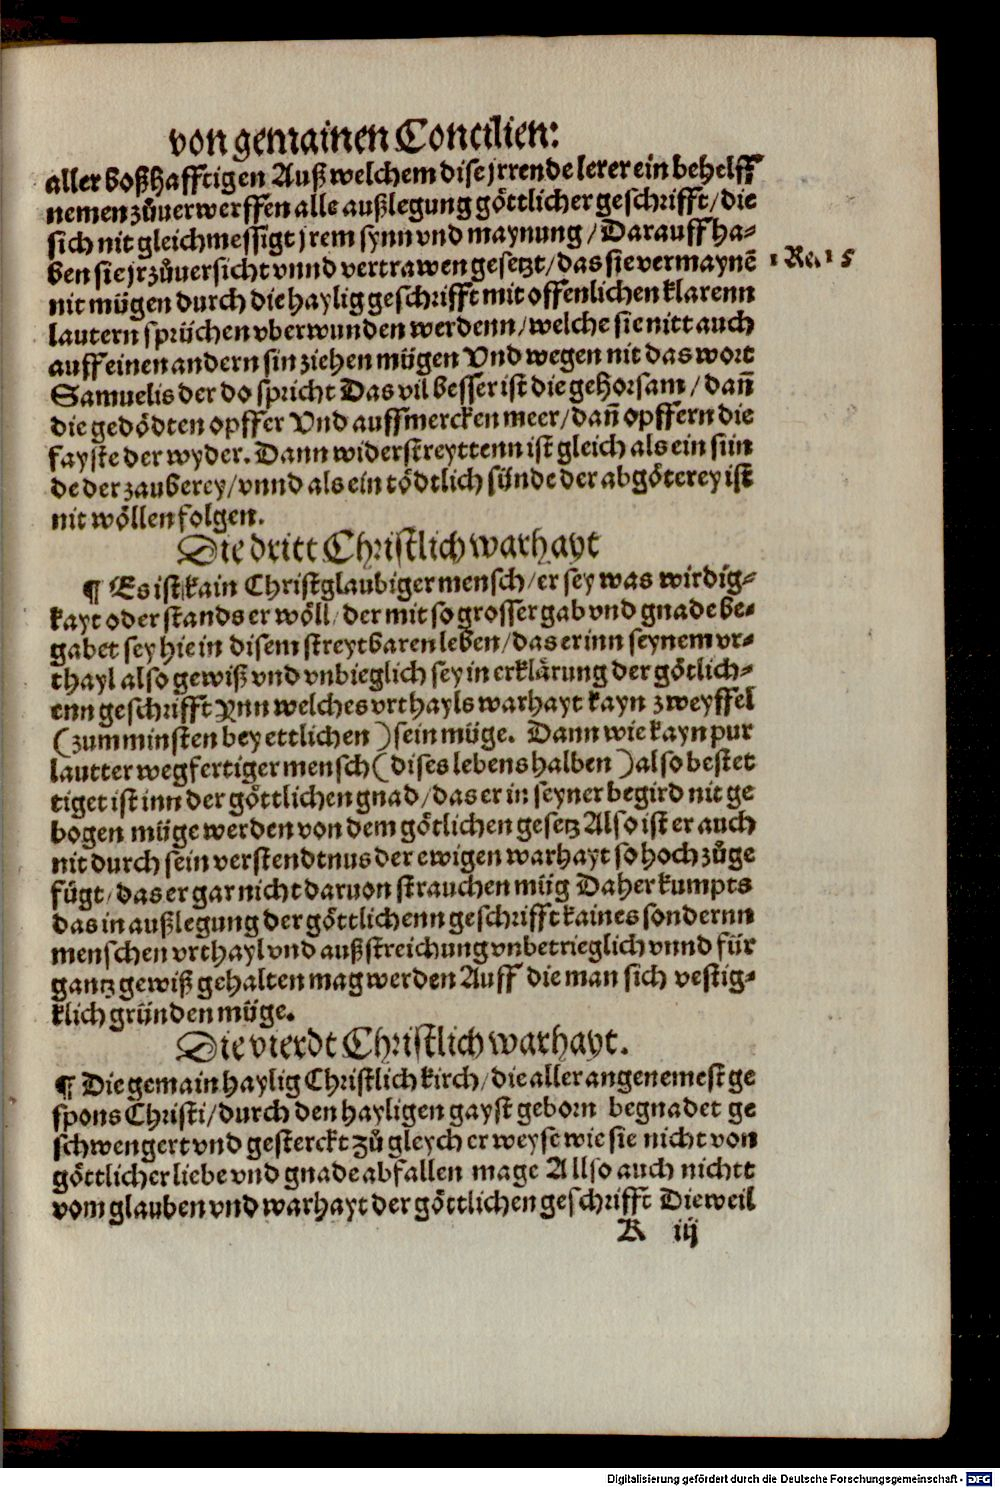 von gemainen Concilien:
aller boßhafftigen Auß welchem dise jrrende lerer ein behelff
nemen zůuerwerffen alle außlegung göttlicher geschrifft/ die
sich nit gleichmessigt jrem synn vnd maynung / Darauff ha-
ben sie jr zůuersicht vnnd vertrawen gesetzt/ das sie vermaynē
1 Re. 15
nit mügen durch die haylig geschrifft mit offenlichen klarenn
lautern sprüchen vberwunden werdenn/ welche sie nitt auch
auff einen andern sin ziehen mügen Vnd wegen nit das wort
Samuelis der do spricht Das vil besser ist die gehorsam / dañ
die gedödten opffer Vnd auffmercken meer/ dañ opffern die
fayste der wyder. Dann widerstreyttenn ist gleich als ein sün
de der zauberey/ vnnd als ein tödtlich sünde der abgöterey ist
nit wöllen folgen.
Die dritt Christlich warhayt
¶ Es ist kain Christglaubiger mensch/ er sey was wirdig-
kayt oder stands er wöll/ der mit so grosser gab vnd gnade be-
gabet sey hie in disem streytbaren leben/ das er inn seynem vr-
thayl also gewiß vnd vnbieglich sey in erklärung der götlich-
enn geschrifft Ynn welches vrthayls warhayt kayn zweyffel
(zum minsten bey ettlichen ) sein müge. Dann wie kayn pur
lautter wegfertiger mensch ( dises lebens halben ) also bestet
tiget ist inn der göttlichen gnad/ das er in seyner begird nit ge
bogen müge werden von dem götlichen gesetz Also ist er auch
nit durch sein verstendtnus der ewigen warhayt so hoch zůge
fügt/ das er gar nicht daruon strauchen müg Daher kumpts
das in außlegung der göttlichenn geschrifft kaines sondernn
menschen vrthayl vnd außstreichung vnbetrieglich vnnd für
gantz gewiß gehalten mag werden Auff die man sich vestig-
klich gründen müge.
Die vierdt Christlich warhayt.
¶ Die gemain haylig Christlich kirch/ die aller angenemest ge
spons Christi/ durch den hayligen gayst geborn begnadet ge
schwengert vnd gesterckt zů gleycher weyse wie sie nicht von
göttlicher liebe vnd gnade abfallen mage Allso auch nichtt
vom glauben vnd warhayt der göttlichen geschrifft Dieweil
K iij
Digitalisierung gefördert durch die Deutsche Forschungsgemeinschaft - DFG